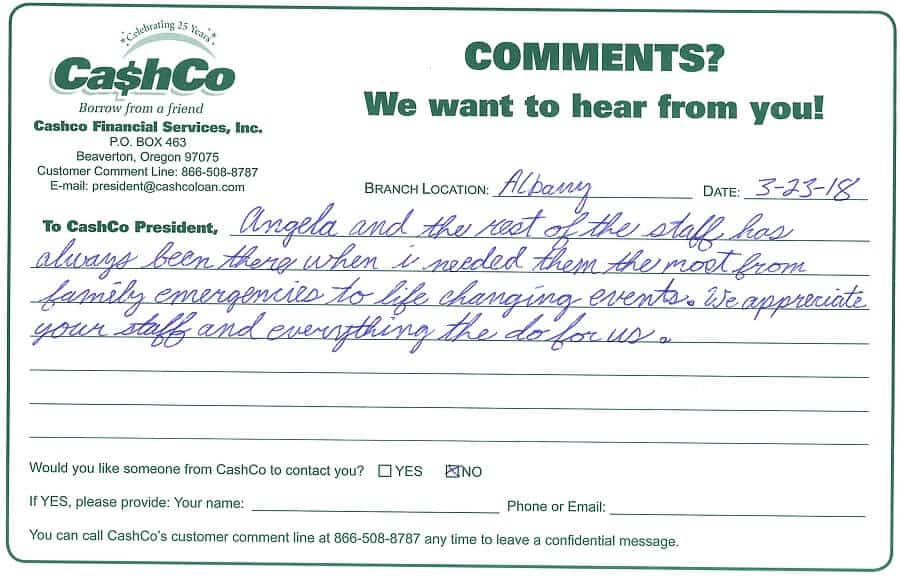 Celebrating 25 Years
Ca$hCo
Borrow from a friend
Cashco Financial Services, Inc.
P.O. BOX 463
Beaverton, Oregon 97075
Customer Comment Line: 866-508-8787
E-mail: president@cashcoloan.com
COMMENTS?
We want to hear from you!
BRANCH LOCATION: Albany DATE: 3-23-18
To CashCo President, Angela and the rest of the staff has
always been there when i needed them the most from
family emergencies to life changing events. We appreciate
your staff and everything the do for us.
Would you like someone from CashCo to contact you? YES NO
If YES, please provide: Your name: Phone or Email:
You can call CashCo's customer comment line at 866-508-8787 any time to leave a confidential message.